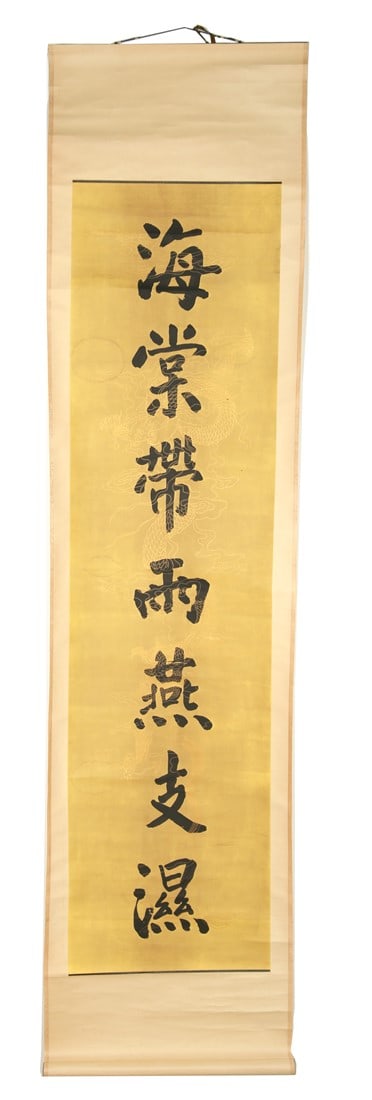 海棠帶雨燕支濕